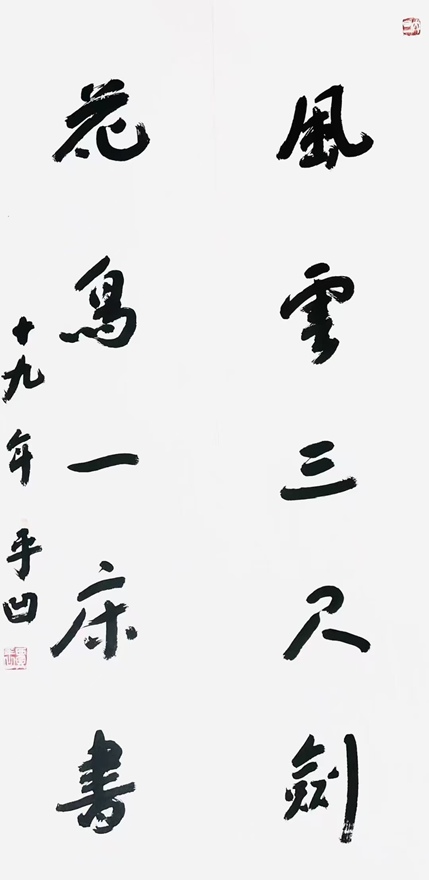 風雲三尺劍
花鳥一床書
十九年 平凹